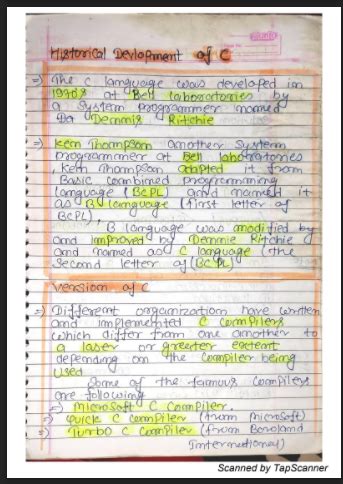 Historical Devlopment of C
=> The C language was developed in
1970's at Bell laboratories by
a System programmer named
Da Dennis Ritchie
=> Ken Thompson another System
programmer at Bell laboratories
, Ken Thompson adopted it from
basic combined programming
language (BCPL) and named it
as B language (first letter of
BCPL),
B language was modified by
and improved by Dennie Ritchie
and named as C language (the
Second letter of (BCPL)
Version of C
=> Different organization have written
and implemented C Compilers
which differ from one another to
a laser or greeter extent
depending on the Compiler being
Used
Some of the famous Compilers
are following
=> Microsoft C Compiler.
=> Quick C Compiler (from Microsoft)
=> Turbo C Compiler (from Boroland
International)
Scanned by TapScanner